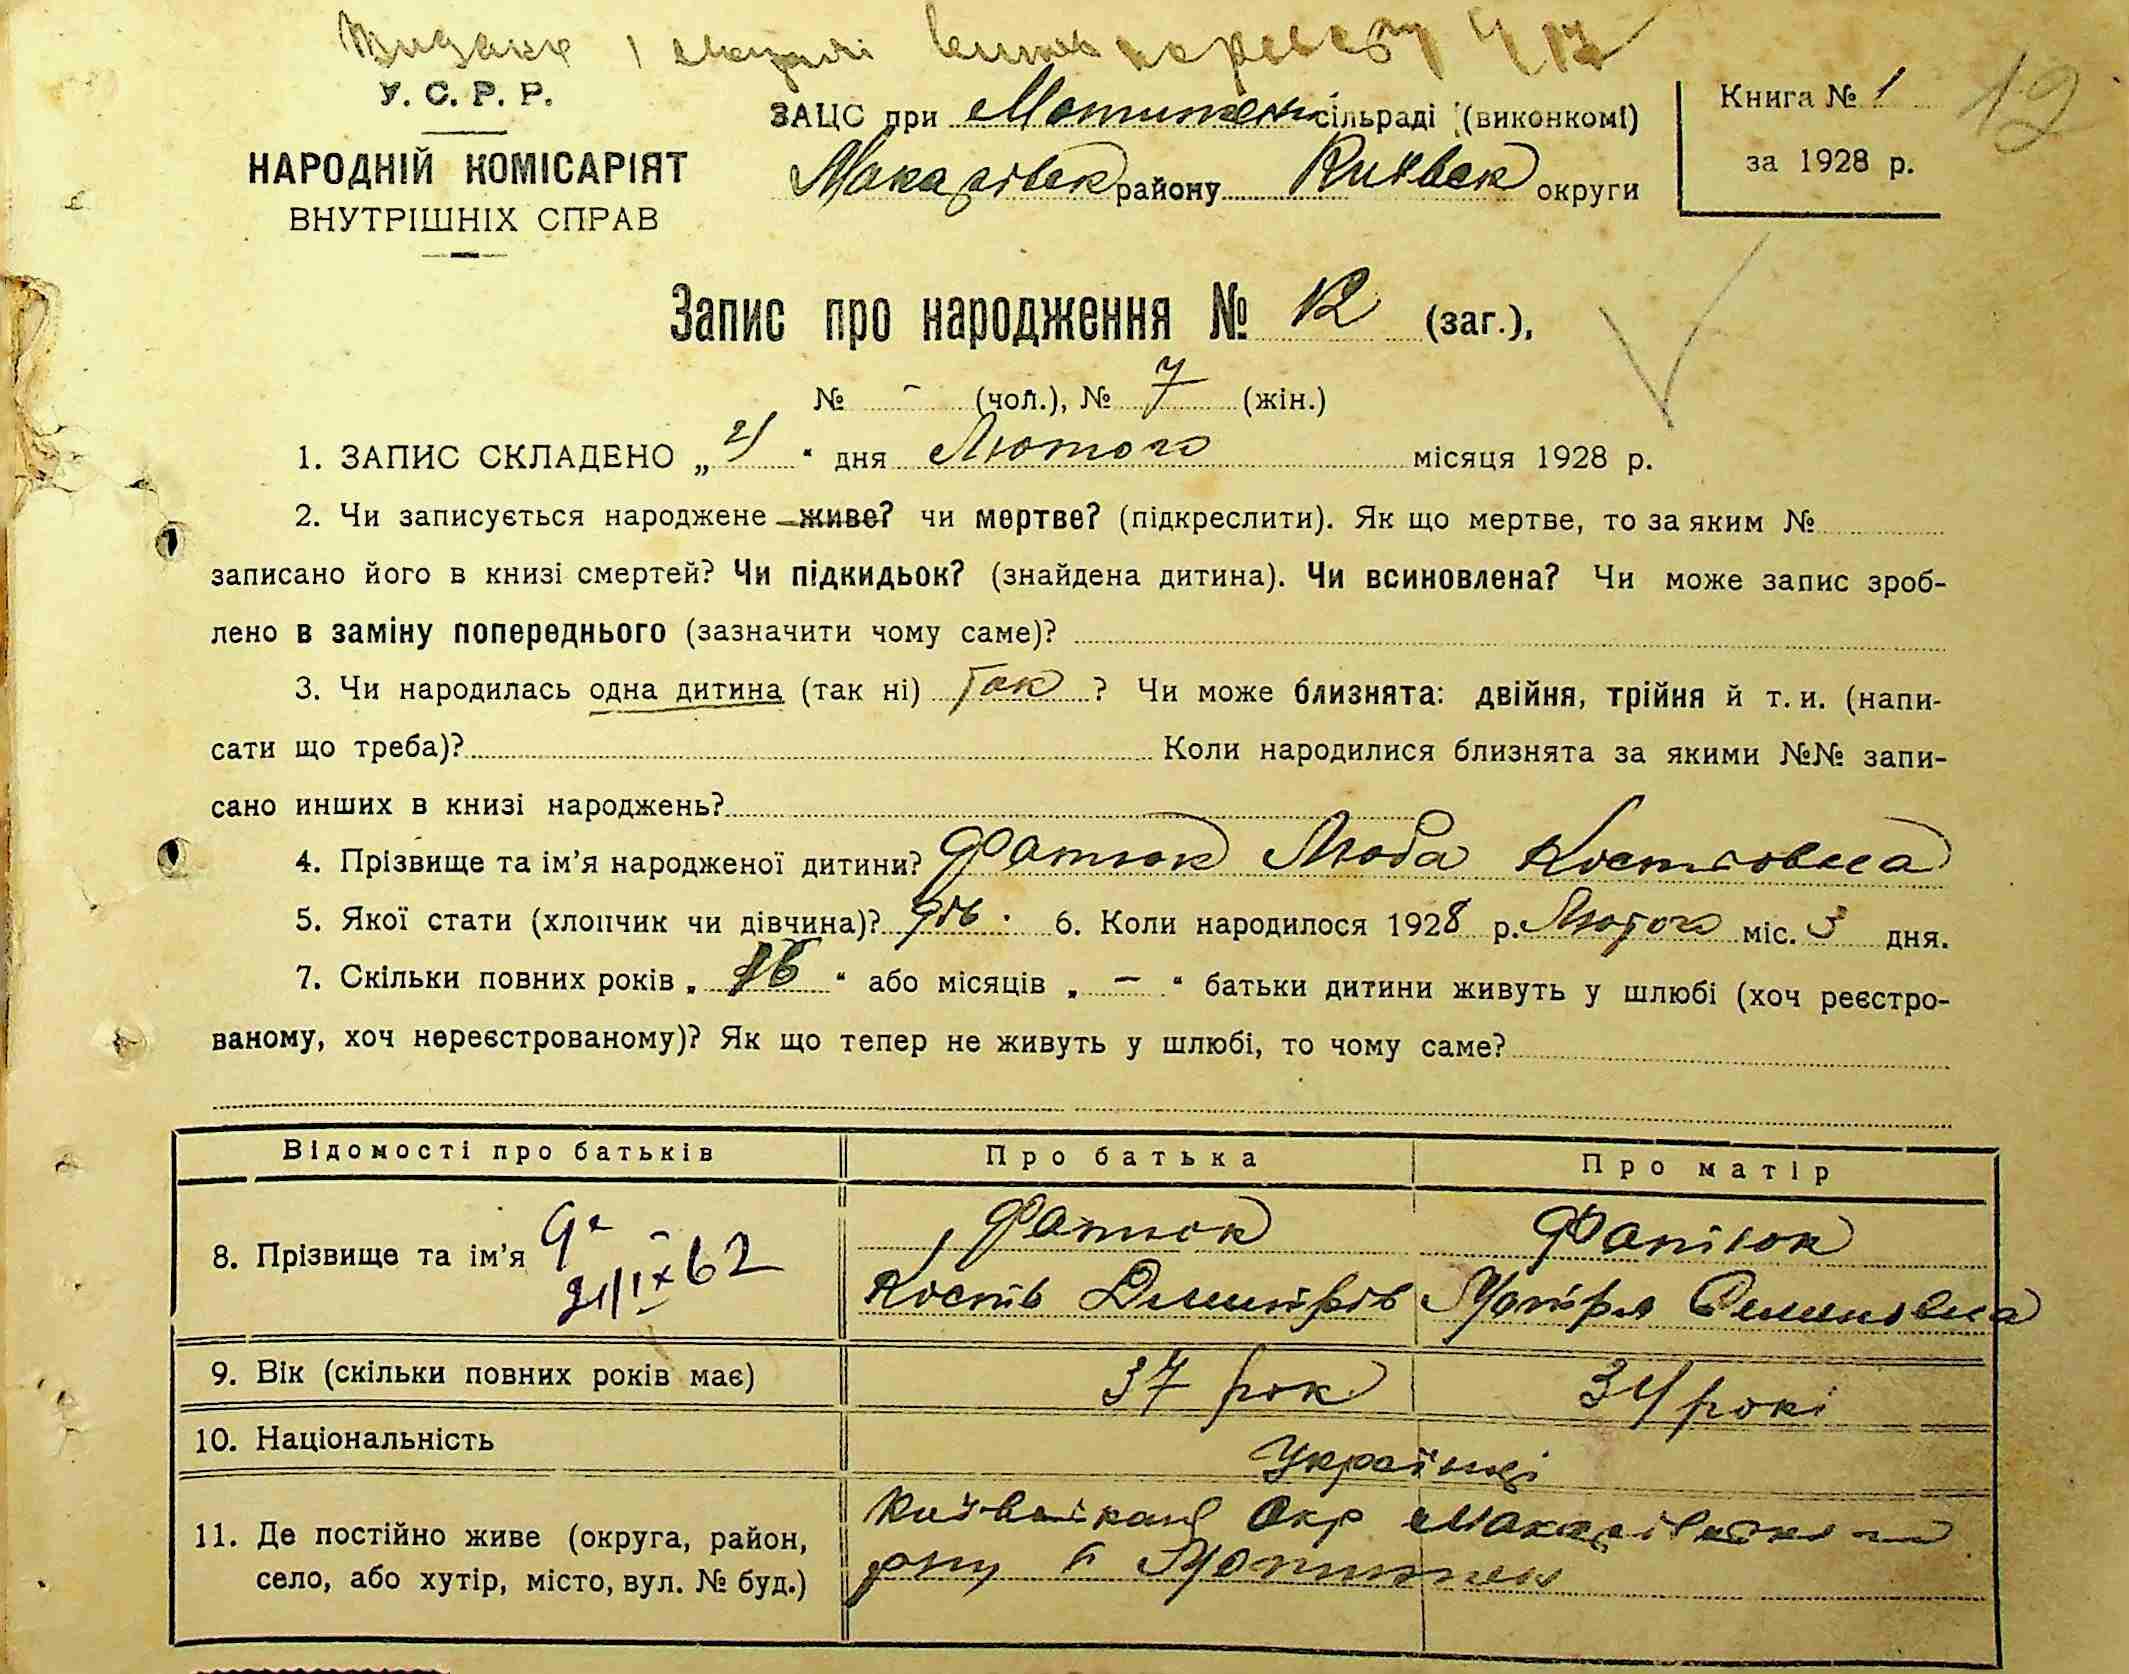 У. С. Р. Р.
НАРОДНІЙ КОМІСАРІЯТ
ВНУТРІШНІХ СПРАВ
ЗАЦС при Мотижен. сільраді (виконкомі)
Макарівськ району Київськ округи
Книга № 1
за 1928 р.
12
Запис про народження № 12 (заг.),
№ - (чол.), № 7 (жін.)
1. ЗАПИС СКЛАДЕНО „ “ дня Лютого місяця 1928 р.
2. Чи записується народжене живе? чи мертве? (підкреслити). Як що мертве, то за яким №
записано його в книзі смертей? Чи підкидьок? (знайдена дитина). Чи всиновлена? Чи може запис зроб-
лено в заміну попереднього (зазначити чому саме)?
3. Чи народилась одна дитина (так ні) Так ? Чи може близнята: двійня, трійня й т. и. (напи-
сати що треба)? Коли народилися близнята за якими №№ запи-
сано инших в книзі народжень?
4. Прізвище та ім’я народженої дитини? Фатюк Люба Костівна
5. Якої стати (хлопчик чи дівчина)? дів. 6. Коли народилося 1928 р. Лютого міс. 3 дня.
7. Скільки повних років „ 16 “ або місяців „ — “ батьки дитини живуть у шлюбі (хоч реєстро-
ваному, хоч нереєстрованому)? Як що тепер не живуть у шлюбі, то чому саме?
Відомості про батьків Про батька Про матір
8. Прізвище та ім’я Фатюк Фатюк
21/IX 62 Кость Дмитрів Мотря Семеновна
9. Вік (скільки повних років має) 37 рок 34 рокі
10. Національність Українці
11. Де постійно живе (округа, район, Київської Окр Макарівського
село, або хутір, місто, вул. № буд.) рну с Мотижен